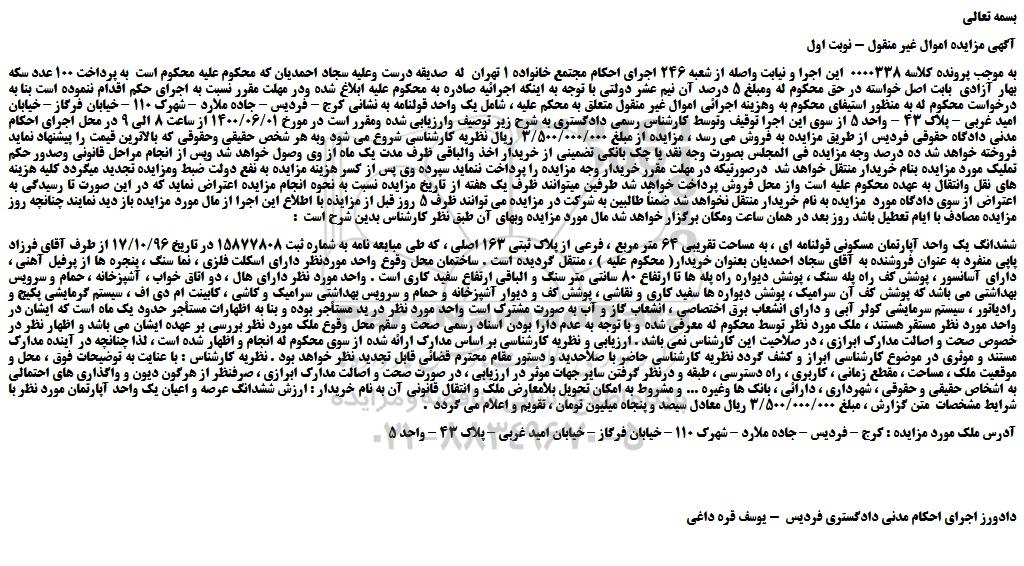 بسمه تعالی
آگهی مزایده اموال غیر منقول – نوبت اول
به موجب پرونده کلاسه 0000338 این اجرا و نیابت واصله از شعبه 246 اجرای احکام مجتمع خانواده 1 تهران له صدیقه درست وعلیه سجاد احمدیان که محکوم علیه محکوم است به پرداخت 100 عدد سکه
بهار آزادی بابت اصل خواسته در حق محکوم له ومبلغ 5 درصد آن نیم عشر دولتی با توجه به اینکه اجرائیه صادره به محکوم علیه ابلاغ شده ودر مهلت مقرر نسبت به اجرای حکم اقدام ننموده است بنا به
درخواست محکوم له به منظور استیفای محکوم به وهزینه اجرائی اموال غیر منقول متعلق به محکم علیه ، شامل یک واحد قولنامه به نشانی کرج – فردیس – جاده ملارد – شهرک 110 – خیابان فرگاز – خیابان
امید غربی – پلاک 43 – واحد 5 از سوی این اجرا توقیف وتوسط کارشناس رسمی دادگستری به شرح زیر توصیف وارزیابی شده ومقرر است در مورخ 1400/06/01 از ساعت 8 الی 9 در محل اجرای احکام
مدنی دادگاه حقوقی فردیس از طریق مزایده به فروش می رسد . مزایده از مبلغ 3/500/000/000 ریال نظریه کارشناسی شروع می شود وبه هر شخص حقیقی وحقوقی که بالاترین قیمت را پیشنهاد نماید
فروخته خواهد شد ده درصد وجه مزایده فی المجلس بصورت وجه نقد یا چک بانکی تضمینی از خریدار اخذ والباقی ظرف مدت یک ماه از وی وصول خواهد شد وپس از انجام مراحل قانونی وصدور حکم
تملیک مورد مزایده بنام خریدار منتقل خواهد شد درصورتیکه در مهلت مقرر خریدار وجه مزایده را پرداخت ننماید سپرده وی پس از کسر هزینه مزایده به نفع دولت ضبط ومزایده تجدید میگردد کلیه هزینه
های نقل وانتقال به عهده محکوم علیه است واز محل فروش پرداخت خواهد شد طرفین میتوانند ظرف یک هفته از تاریخ مزایده نسبت به نحوه انجام مزایده اعتراض نماید که در این صورت تا رسیدگی به
اعتراض از سوی دادگاه مورد مزایده به نام خریدار منتقل نخواهد شد ضمناً طالبین به شرکت در مزایده می توانند ظرف 5 روز قبل از مزایده با اطلاع این اجرا از مال مورد مزایده باز دید نمایند چنانچه روز
مزایده مصادف با ایام تعطیل باشد روز بعد در همان ساعت ومکان برگزار خواهد شد مال مورد مزایده وبهای آن طبق نظر کارشناس بدین شرح است :
ششدانگ یک واحد آپارتمان مسکونی قولنامه ای ، به مساحت تقریبی 63 متر مربع ، فرعی از پلاک ثبتی 163 اصلی ، که طی مبایعه نامه به شماره ثبت 15877808 در تاریخ 17/10/96 از طرف آقای فرزاد
پاپی منفرد به عنوان فروشنده به آقای سجاد احمدیان بعنوان خریدار( محکوم علیه ) ، منتقل گردیده است . ساختمان محل وقوع واحد موردنظر دارای اسکلت فلزی ، نما سنگ ، پنجره ها از پرفیل آهنی ،
دارای آسانسور ، پوشش کف راه پله سنگ ، پوشش دیواره راه پله ها تا ارتفاع 80 سانتی متر سنگ و الباقی ارتفاع سفید کاری است . واحد مورد نظر دارای هال ، دو اتاق خواب ، آشپزخانه ، حمام و سرویس
بهداشتی می باشد که پوشش کف آن سرامیک ، پوشش دیواره ها سفید کاری و نقاشی ، پوشش کف و دیوار آشپزخانه و حمام و سرویس بهداشتی سرامیک و کاشی ، کابینت ام دی اف ، سیستم گرمایشی پکیج و
رادیاتور ، سیستم سرمایشی کولر آبی و دارای انشعاب برق اختصاصی ، انشعاب گاز و آب به صورت مشترک است واحد مورد نظر در ید مستأجر بوده و بنا به اظهارات مستأجر حدود یک ماه است که ایشان در
واحد مورد نظر مستقر هستند ، ملک مورد نظر توسط محکوم له معرفی شده و با توجه به عدم دارا بودن اسناد رسمی صحت و سقم محل وقوع ملک مورد نظر بررسی بر عهده ایشان می باشد و اظهار نظر در
خصوص صحت و اصالت مدارک ابرازی ، در صلاحیت این کارشناس نمی باشد . ارزیابی و نظریه کارشناسی بر اساس مدارک ارائه شده از سوی محکوم له انجام و اظهار شده است ، لذا چنانچه در آینده مدارک
مستند و موثری در موضوع کارشناسی ابراز و کشف گردد نظریه کارشناسی حاضر با صلاحدید و دستور مقام محترم قضائی قابل تجدید نظر خواهد بود . نظریه کارشناس : با عنایت به توضیحات فوق ، محل و
موقعیت ملک ، مساحت ، مقطع زمانی ، کاربری ، راه دسترسی ، طبقه و درنظر گرفتن سایر جهات موثر در ارزیابی ، در صورت صحت و اصالت مدارک ابرازی ، صرفنظر از هرگون دیون و واگذاری های احتمالی
به اشخاص حقیقی و حقوقی ، شهرداری ، دارائی ، بانک ها وغیره ... و مشروط به امکان تحویل بلامعارض ملک و انتقال قانونی آن به نام خریدار : ارزش ششدانگ عرصه و اعیان یک واحد آپارتمان مورد نظر با
شرایط مشخصات متن گزارش ، مبلغ 3/500/000/000 ریال معادل سیصد و پنجاه میلیون تومان ، تقویم و اعلام می گردد .
آدرس ملک مورد مزایده : کرج – فردیس – جاده ملارد – شهرک 110 – خیابان فرگاز – خیابان امید غربی – پلاک 43 – واحد 5
دادورز اجرای احکام مدنی دادگستری فردیس – یوسف قره داغی